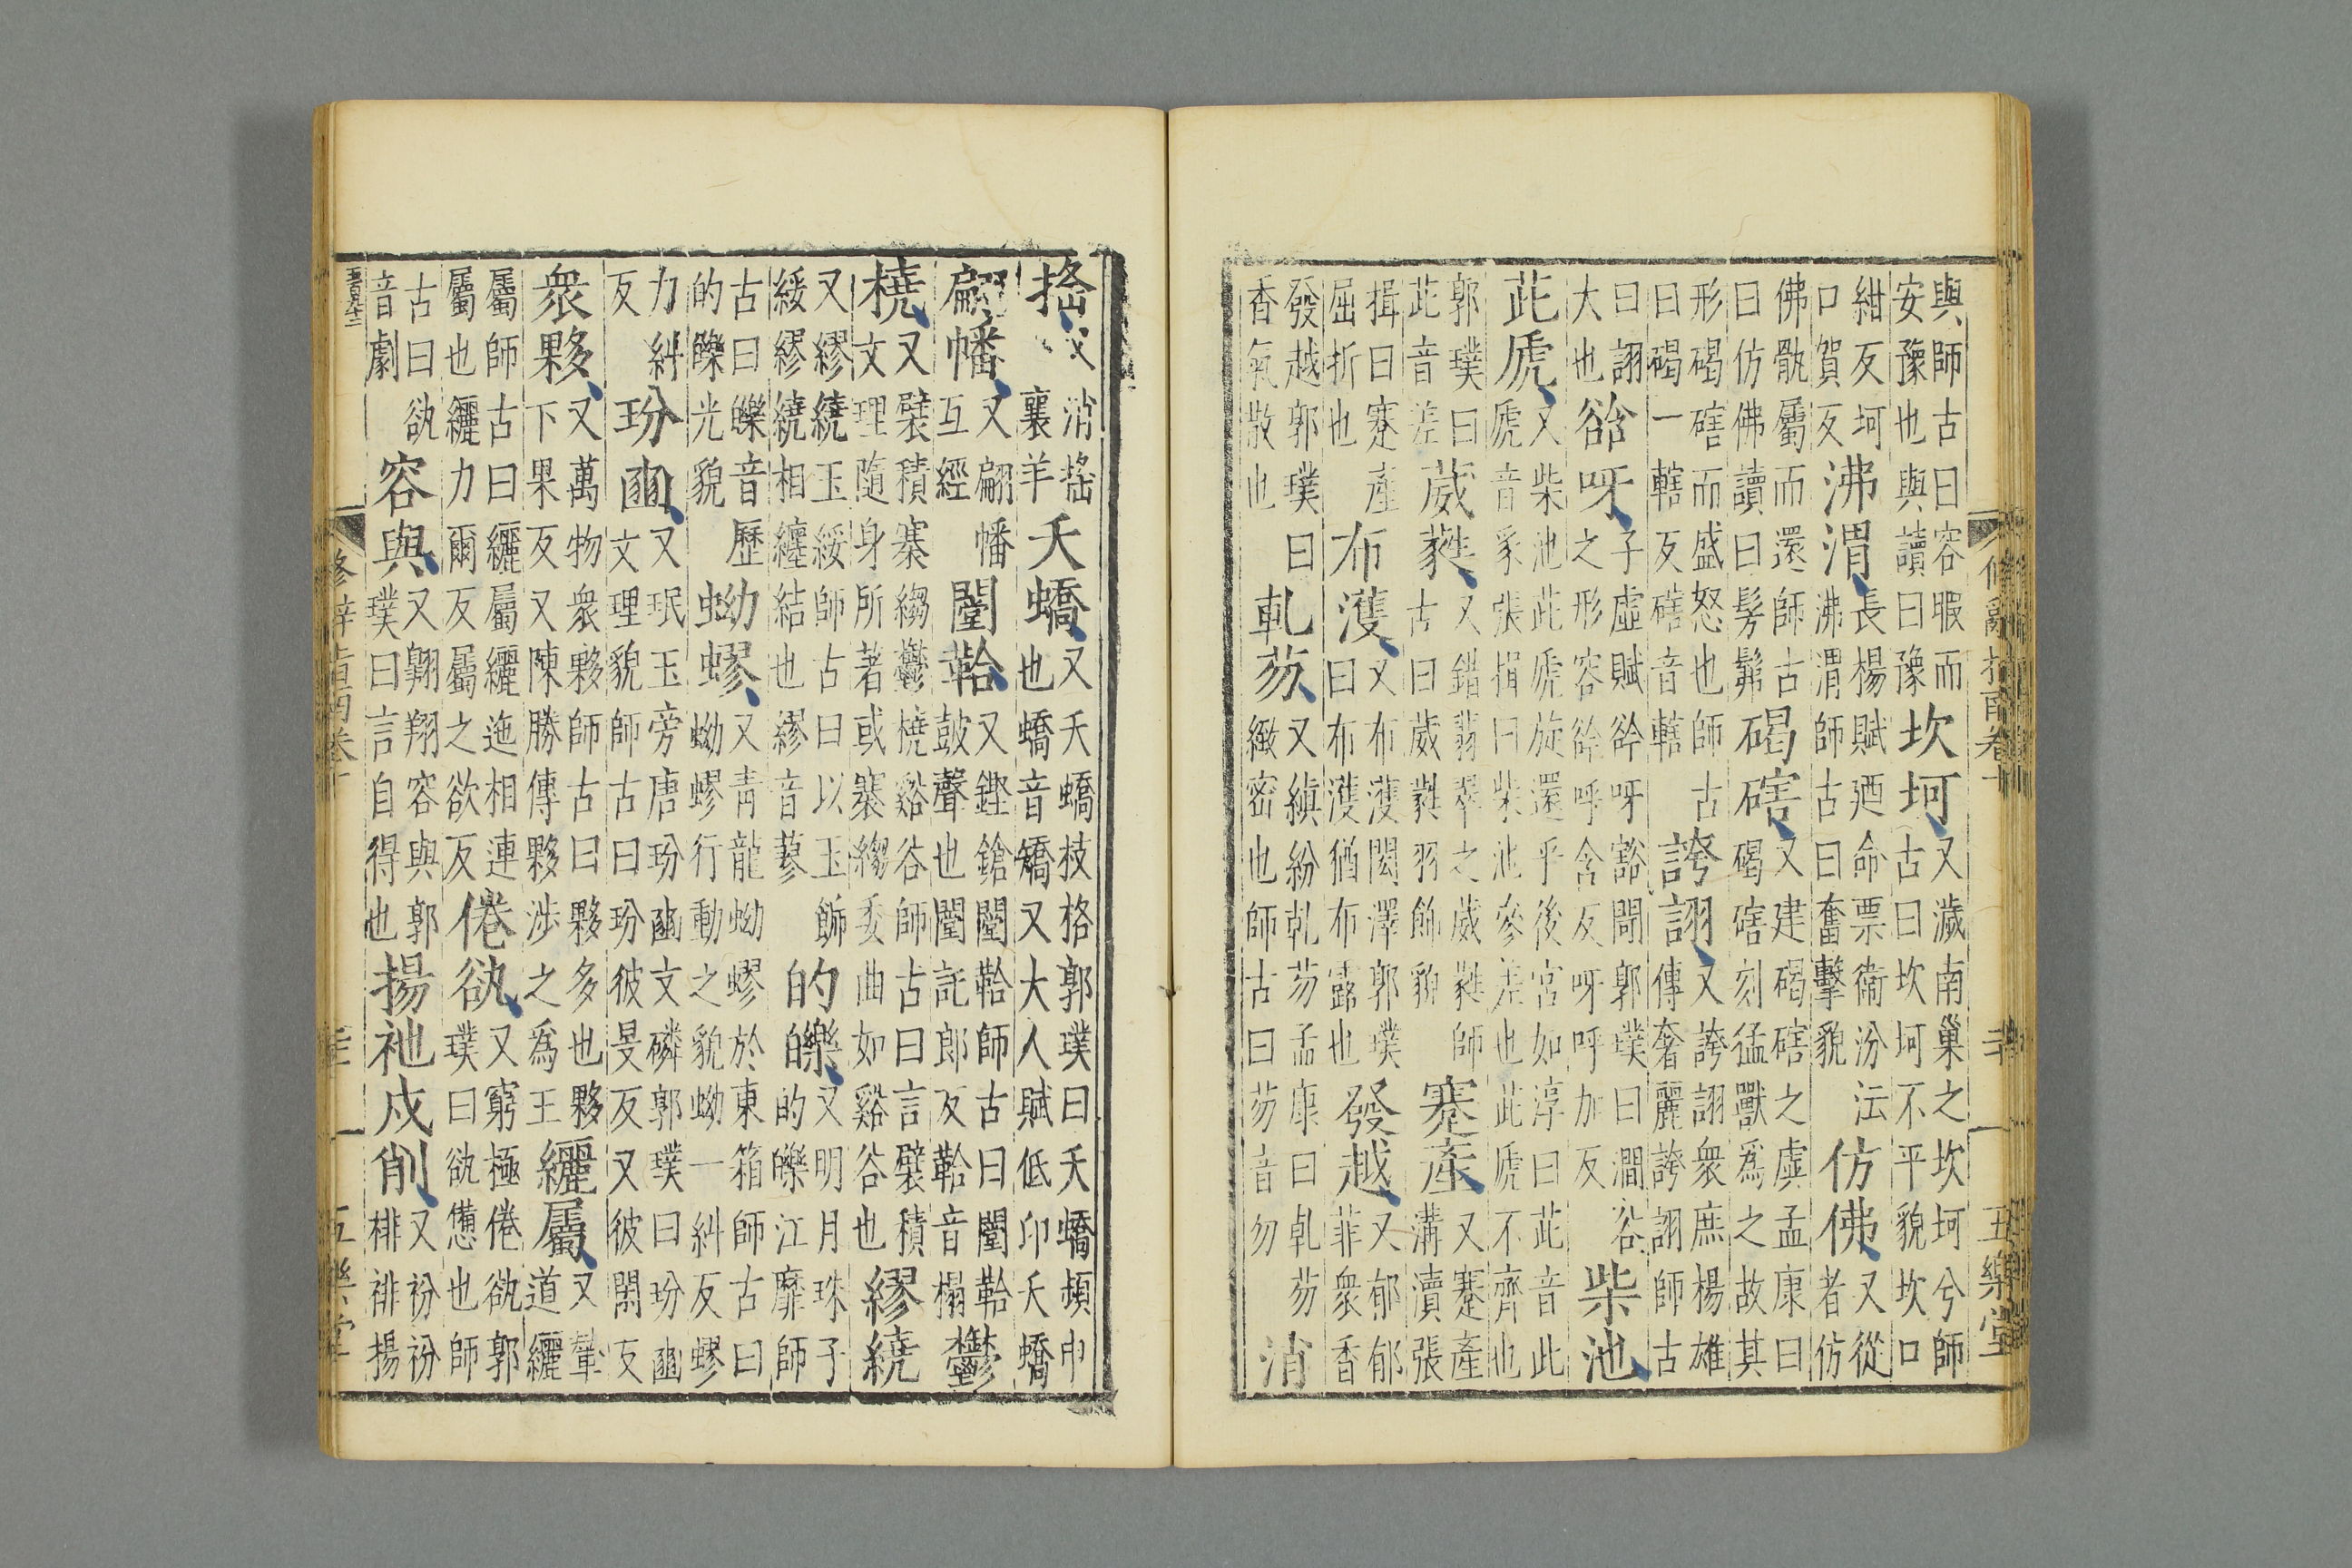 與師古曰容暇而
安豫也與讀曰豫
坎坷
又濊南巢之坎坷兮師
古曰坎坷不平貌坎口
紺反坷
口賀反
沸渭
長楊賦廼命票衞汾沄
沸渭師古曰奮擊貌
仿佛
又從
者仿
佛骩屬而還師古
曰仿佛讀曰髣髴
碣磍
又建碣磍之虡孟康曰
碣磍刻猛獸爲之故其
形碣磍而盛怒也師古
曰碣一轄反磍音轄
誇詡
又誇詡衆庶楊雄
傳奢麗誇詡師古
曰詡
大也
谽呀
子虛賦谽呀豁閜郭璞曰澗谷
之形容谽呼含反呀呼加反
柴池
茈虒
又柴池茈虒旋還乎後宮如淳曰茈音此
虒音豸張揖曰柴池參差也茈虒不齊也
郭璞曰
茈音差
葳蕤
又錯翡翠之葳蕤師
古曰葳蕤羽飾貌
蹇產
又蹇產
溝瀆張
揖曰蹇產
屈折也
布濩
又布濩閎澤郭璞
曰布濩猶布露也
發越
又郁郁
菲衆香
發越郭璞曰
香氣散也
軋芴
又縝紛軋芴孟康曰軋芴
緻密也師古曰芴音勿
消
修辭指南卷十 二十 五樂堂
搖
消搖
襄羊
夭蟜
又夭蟜枝格郭璞曰夭蟜頻卬
也蟜音矯又大人賦低卬夭蟜
翩幡
又翩幡
互經
闛鞈
又鏗鎗闛鞈師古曰闛鞈
鼓聲也闛託郎反鞈音榻
鬱
橈
又襞積褰縐鬱橈谿谷師古曰言襞積
文理隨身所著或褰縐委曲如谿谷也
繆繞
又繆繞玉綏師古曰以玉飾
綏繆繞相纏結也繆音蓼
的皪
又明月珠子
的皪江靡師
古曰皪音歷
的皪光貌
蚴蟉
又青龍蚴蟉於東箱師古曰
蚴蟉行動之貌蚴一糾反蟉
力糾
反
玢豳
又珉玉旁唐玢豳文磷郭璞曰玢豳
文理貌師古曰玢彼旻反又彼閑反
衆夥
又萬物衆夥師古曰夥多也夥
下果反又陳勝傳夥涉之爲王
纚屬
又輦
道纚
屬師古曰纚屬纚迤相連
屬也纚力爾反屬之欲反
倦㕁
又窮極倦㕁郭
璞曰㕁憊也師
古曰㕁
音劇
容與
又翱翔容與郭
璞曰言自得也
揚衪戌削
又衯衯
裶裶揚
五百九十二
修辭指南卷十 五樂堂